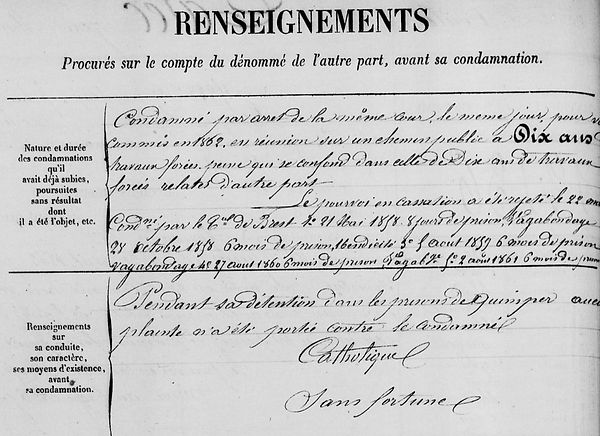 RENSEIGNEMENTS
Procurés sur le compte du dénommé de l'autre part, avant sa condamnation.
Nature et durée
des condamnations
qu'il
avait déjà subies,
poursuites
sans résultat
dont
il a été l'objet, etc.
Condamné par arret de la même cour, le même jour, pour
commis en 1862, en réunion sur un chemin public à Dix ans
travaux forcés. peine qui se confond dans celle de Dix ans de travaux
forcés relatés d'autre part
Le pourvoi en cassation a été rejeté le 22 mai
Condné par le Tal de Brest 1o 21 Mai 1858. 8 jours de prison, Vagabondage
28 octobre 1858 6 mois de prison, Mendicité 3o 5 août 1859 6 mois de prison
vagabondage 4o 27 août 1860 6 mois de prison Vagabge 5o 2 août 1861 6 mois de prison
Renseignements
sur
sa conduite,
son caractère,
ses moyens d'existence,
avant
sa condamnation.
Pendant sa détention dans les prisons de Quimper aucu
plainte n'a été portée contre le condamné
Catholique
Sans fortune